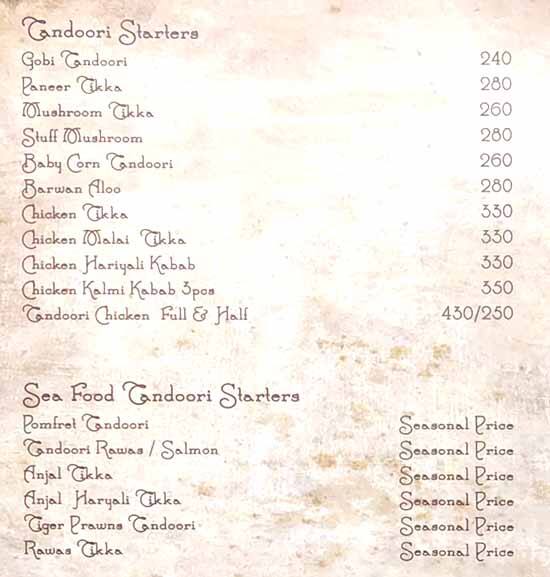 Tandoori Starters
Gobi Tandoori 240
Paneer Tikka 280
Mushroom Tikka 260
Stuff Mushroom 280
Baby Corn Tandoori 260
Barwan Aloo 280
Chicken Tikka 330
Chicken Malai Tikka 330
Chicken Hariyali Kabab 330
Chicken Kalmi Kabab 3pcs 350
Tandoori Chicken Full & Half 430/250
Sea Food Tandoori Starters
Pomfret Tandoori Seasonal Price
Tandoori Rawas / Salmon Seasonal Price
Anjal Tikka Seasonal Price
Anjal Haryali Tikka Seasonal Price
Tiger Prawns Tandoori Seasonal Price
Rawas Tikka Seasonal Price